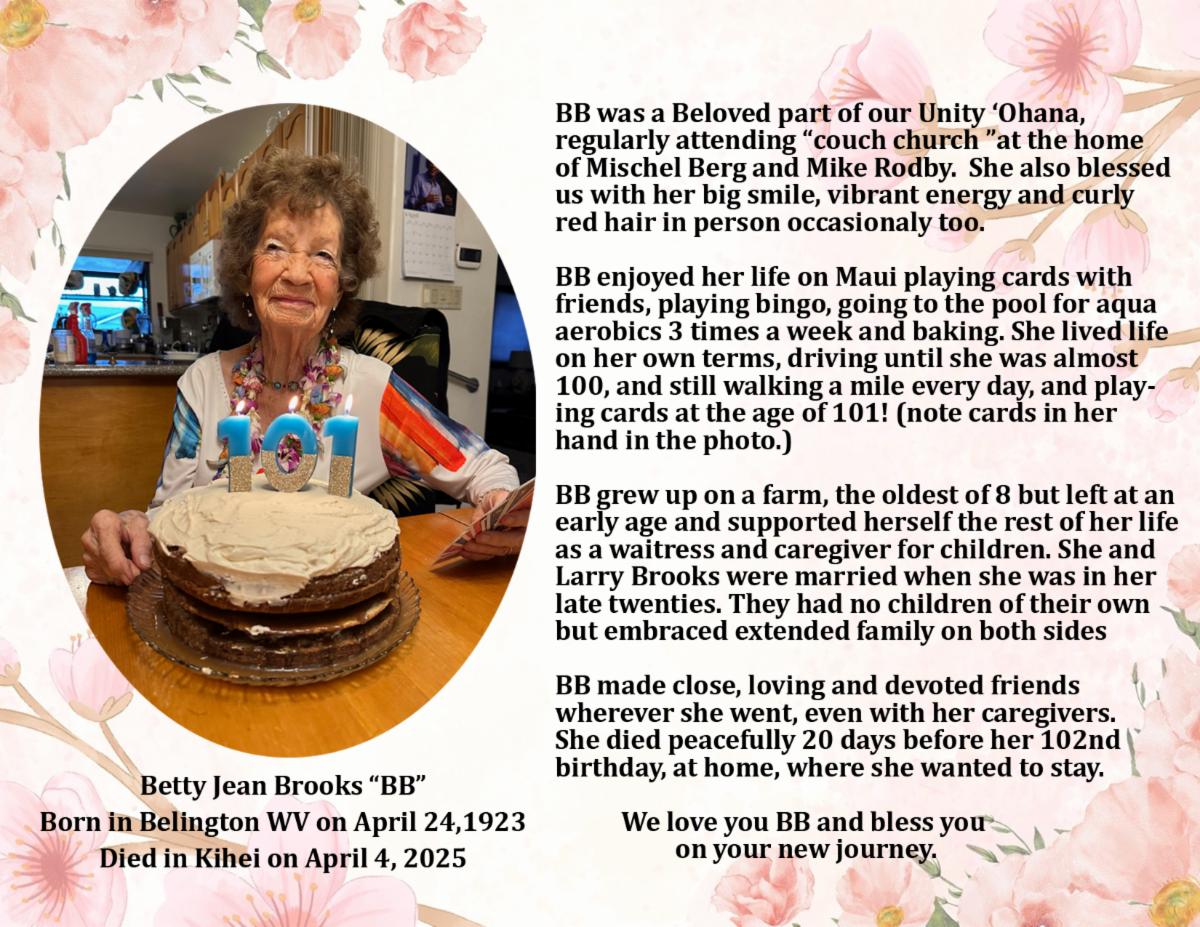 101
Betty Jean Brooks “BB”
Born in Belington WV on April 24,1923
Died in Kihei on April 4, 2025
BB was a Beloved part of our Unity ‘Ohana,
regularly attending “couch church ”at the home
of Mischel Berg and Mike Rodby.  She also blessed
us with her big smile, vibrant energy and curly
red hair in person occasionaly too.
BB enjoyed her life on Maui playing cards with
friends, playing bingo, going to the pool for aqua
aerobics 3 times a week and baking. She lived life
on her own terms, driving until she was almost
100, and still walking a mile every day, and play-
ing cards at the age of 101! (note cards in her
hand in the photo.)
BB grew up on a farm, the oldest of 8 but left at an
early age and supported herself the rest of her life
as a waitress and caregiver for children. She and
Larry Brooks were married when she was in her
late twenties. They had no children of their own
but embraced extended family on both sides
BB made close, loving and devoted friends
wherever she went, even with her caregivers.
She died peacefully 20 days before her 102nd
birthday, at home, where she wanted to stay.
We love you BB and bless you
on your new journey.